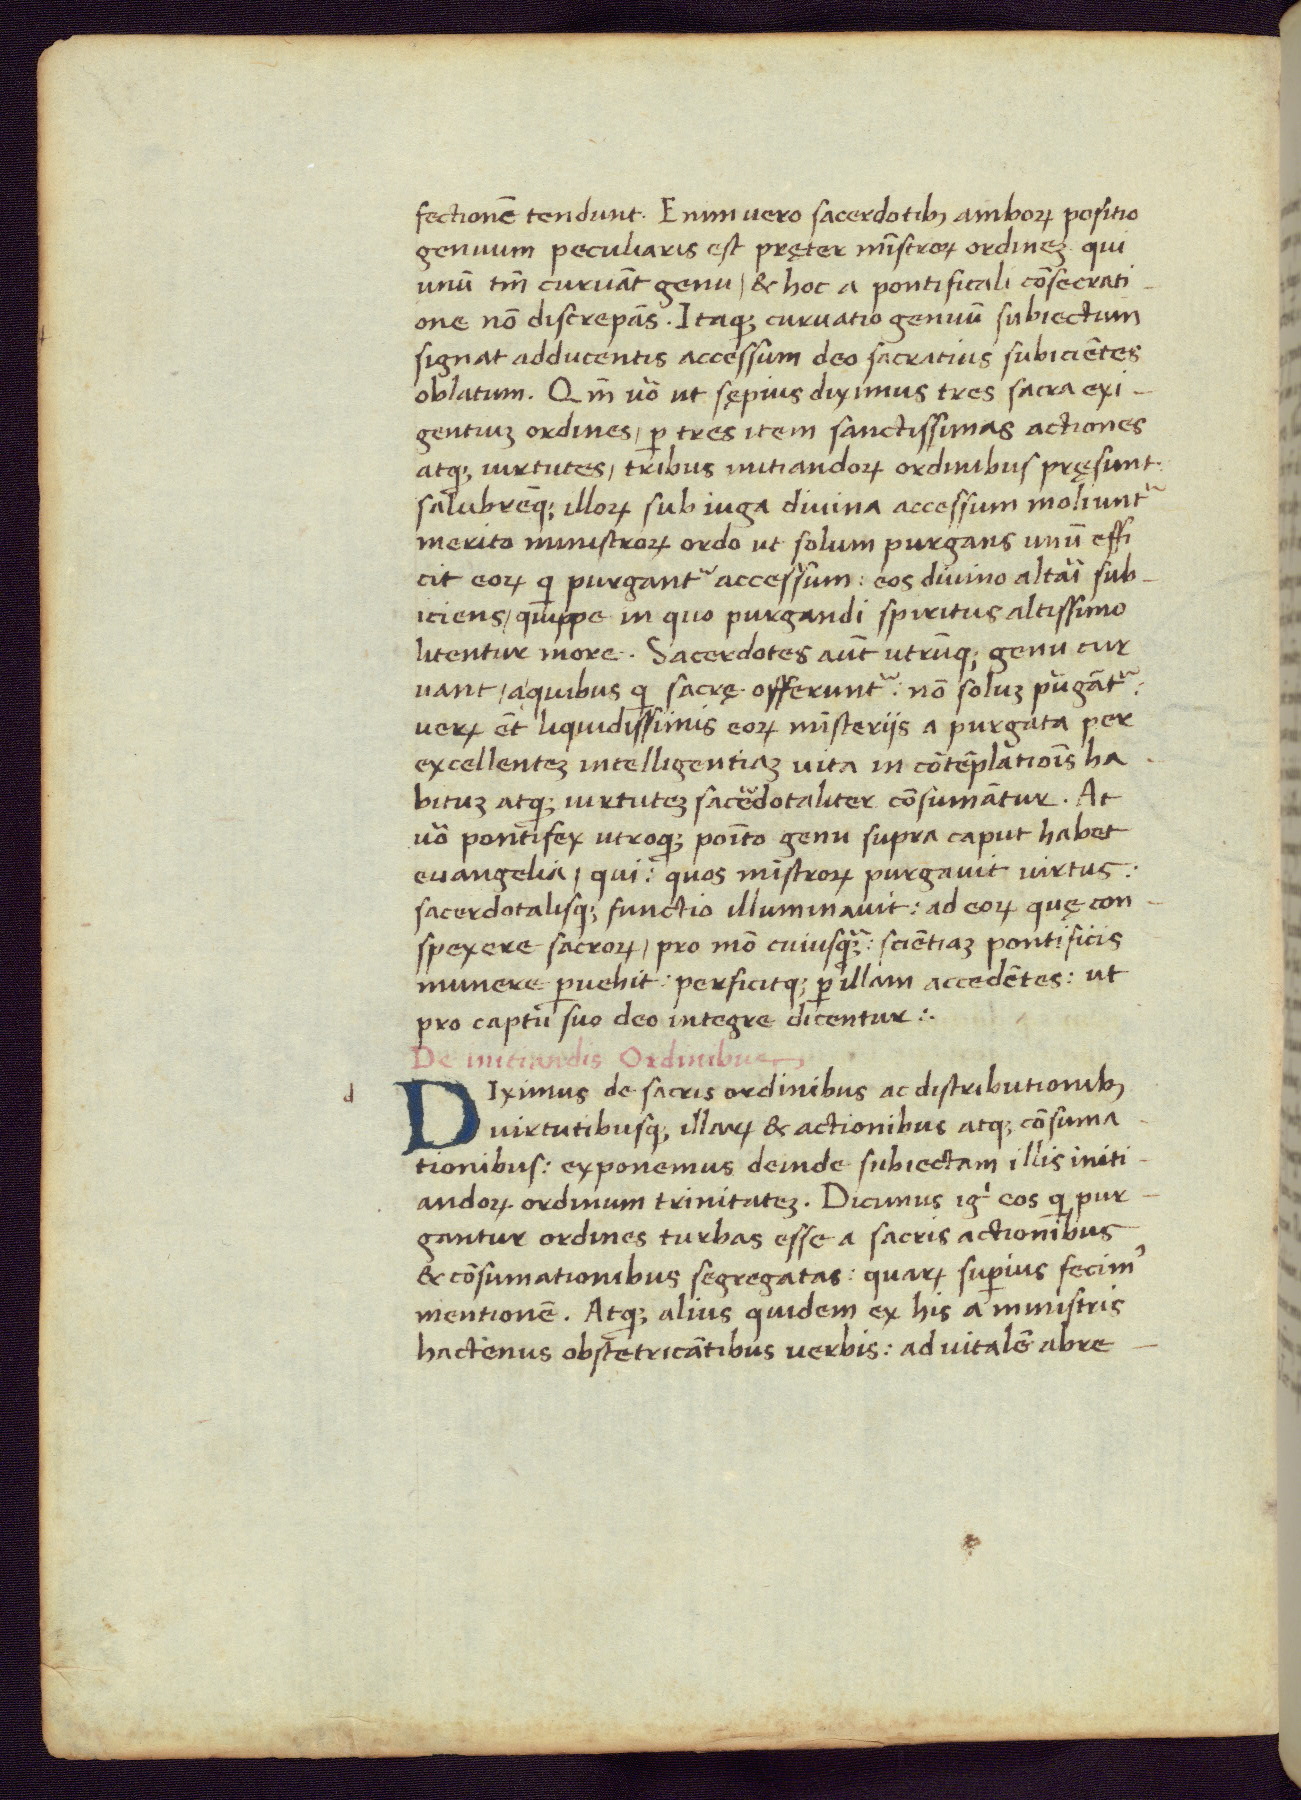 fectionē tendunt. Enim uero sacerdotibꝫ amboꝝ positio
genuum peculiaris est pręter mīstroꝝ ordineꝫ qui
unū tm̄ curuāt genu / & hoc a pontificali cōsecrati-
one nō discrepās. Itaqꝫ curuatio genuū subiectum
signat adducentis accessum deo sacratius subiciētes
oblatum. Qm̄ uō ut sępius diximus tres sacra exi-
gentiuꝫ ordines / ꝑ tres item sanctissimas actiones
atqꝫ uirtutes / tribus initiandoꝝ ordinibus pręsunt.
salubrēqꝫ illoꝝ sub iuga diuina accessum moliunt᷑
merito ministroꝝ ordo ut solum purgans unū effi
cit eoꝝ q̄ purgant᷑ accessum: eos diuino altāi sub-
iciens / quippe in quo purgandi spiritus altissimo
litentur more. Sacerdotes aūt utrūqꝫ genu cur
uant / a quibus q̄ sacrę offerunt᷑: nō soluꝫ pūgāt᷑:
ueꝝ ēt liquidissimis eoꝝ mīsterijs a purgata per
excellenteꝫ intelligentiaꝫ uita in cōtēplatiōis ha-
bituꝫ atqꝫ uirtuteꝫ sacēdotaliter cōsumātur. At
uō pontifex utroqꝫ poīto genu supra caput habet
euangelia / qui: quos mīstroꝝ purgauit uirtus:
sacerdotalisqꝫ functio illuminauit: ad eoꝝ quę con-
spexere sacroꝝ / pro mō cuiusqꝫ: sciētiaꝫ pontificis
munere ꝑuehit: perficitqꝫ ꝑ illam accedētes: ut
pro captu suo deo integre dicentur:.
De initiandis Ordinibus
d DIximus de sacris ordinibus ac distributionibꝫ
uirtutibusqꝫ illaꝝ & actionibus atqꝫ cōsuma-
tionibus: exponemus deinde subiectam illis initi-
andoꝝ ordinum trinitateꝫ. Dicimus igⁱ eos q̄ pur-
gantur ordines turbas esse a sacris actionibus
& cōsumationibus segregatas: quaꝝ suꝑius fecim᾽
mentionē. Atqꝫ alius quidem ex his a ministris
hactenus obstetricātibus uerbis: ad uitalē abre-